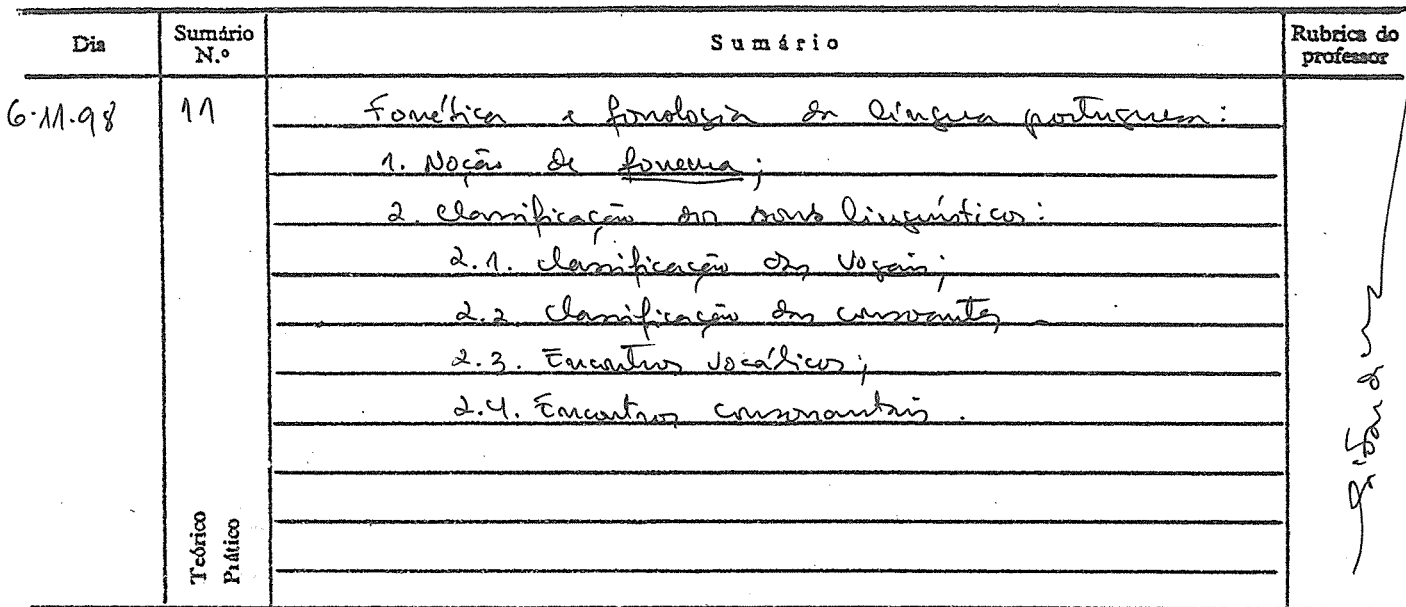 Dia
Sumário N.º
Sumário
Rubrica do professor
6-11-98
11
Fonética e fonologia da língua portuguesa:
1. Noção de fonema;
2. Classificação dos sons linguísticos:
2.1. Classificação das vogais;
2.2. Classificação das consoantes
2.3. Encontros vocálicos;
2.4. Encontros consonantais.
Teórico
Prático